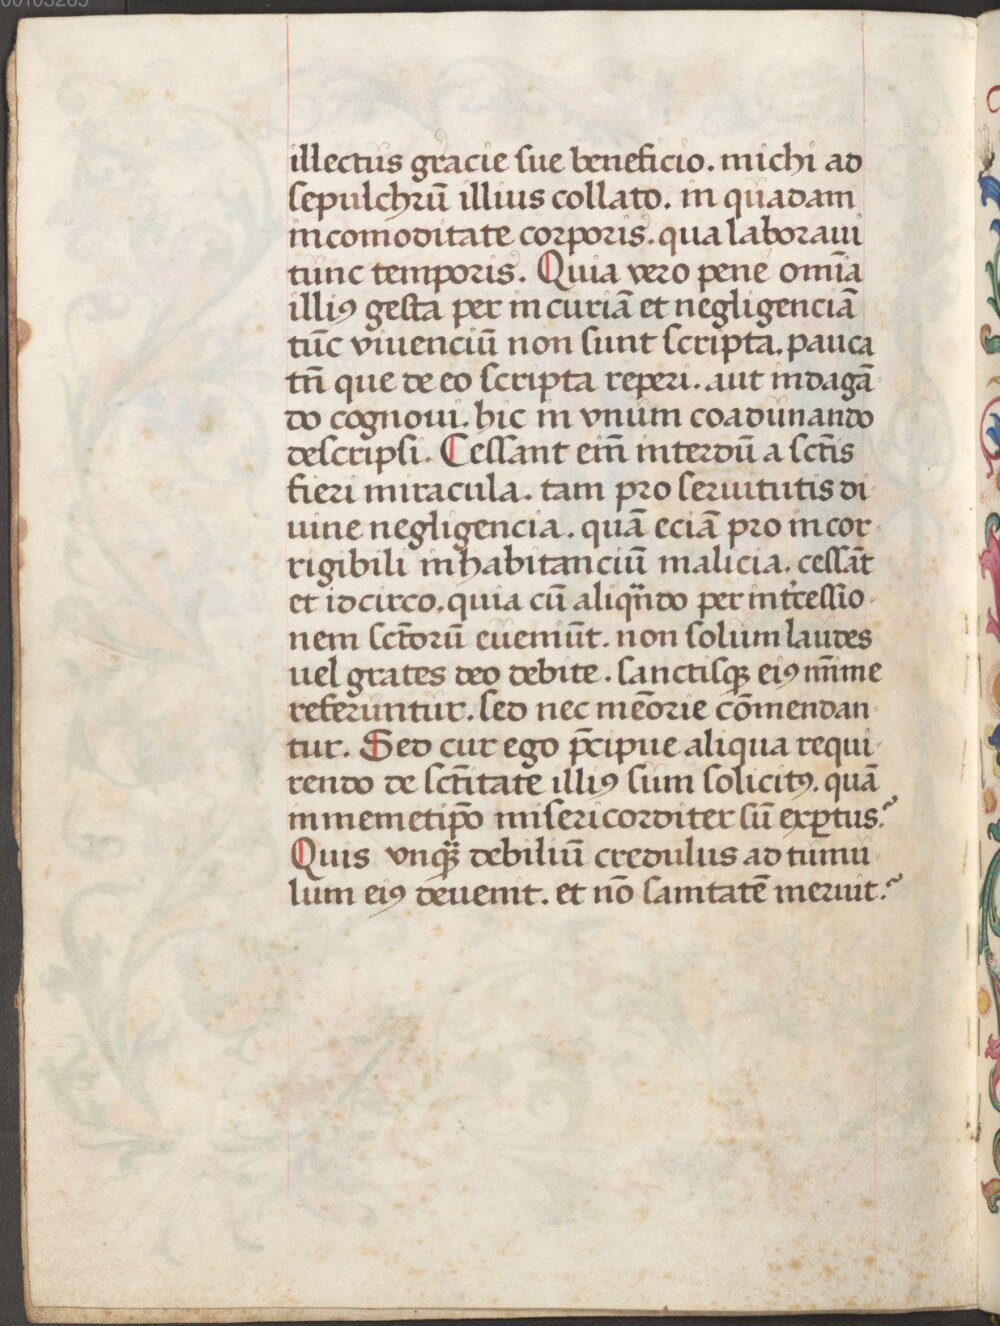 00103265
illectus gracie sue beneficio. michi ad
sepulchrū illius collato. in quadam
incomoditate corporis. qua laboraui
tunc temporis. Quia vero pene omīa
illiꝰ gesta per incuriā et negligenciā
tūc viuenciū non sunt scripta. pauca
tn̄ que de eo scripta reperi. aut indagā-
do cognoui. hic in vnum coadunando
descripsi. Cessant eīm interdū a sct̄is
fieri miracula. tam pro seruitutis di-
uine negligencia. quā eciā pro incor-
rigibili inhabitanciū malicia. cessāt
et idcirco. quia cū aliqn̄do per int̄cessio-
nem sct̄orū eueniūt. non solum laudes
uel grates deo debite. sanctisqꝫ eiꝰ mīme
referuntur. sed nec mēorie cōmendan-
tur. Sed cur ego p̄cipue aliqua requi-
rendo de sct̄itate illiꝰ sum solicitꝰ. quā
in memetip̄o misericorditer sū exꝑtus?
Quis vnqꝫ debiliū credulus ad tumu-
lum eiꝰ deuenit. et nō sanitatē meruit?